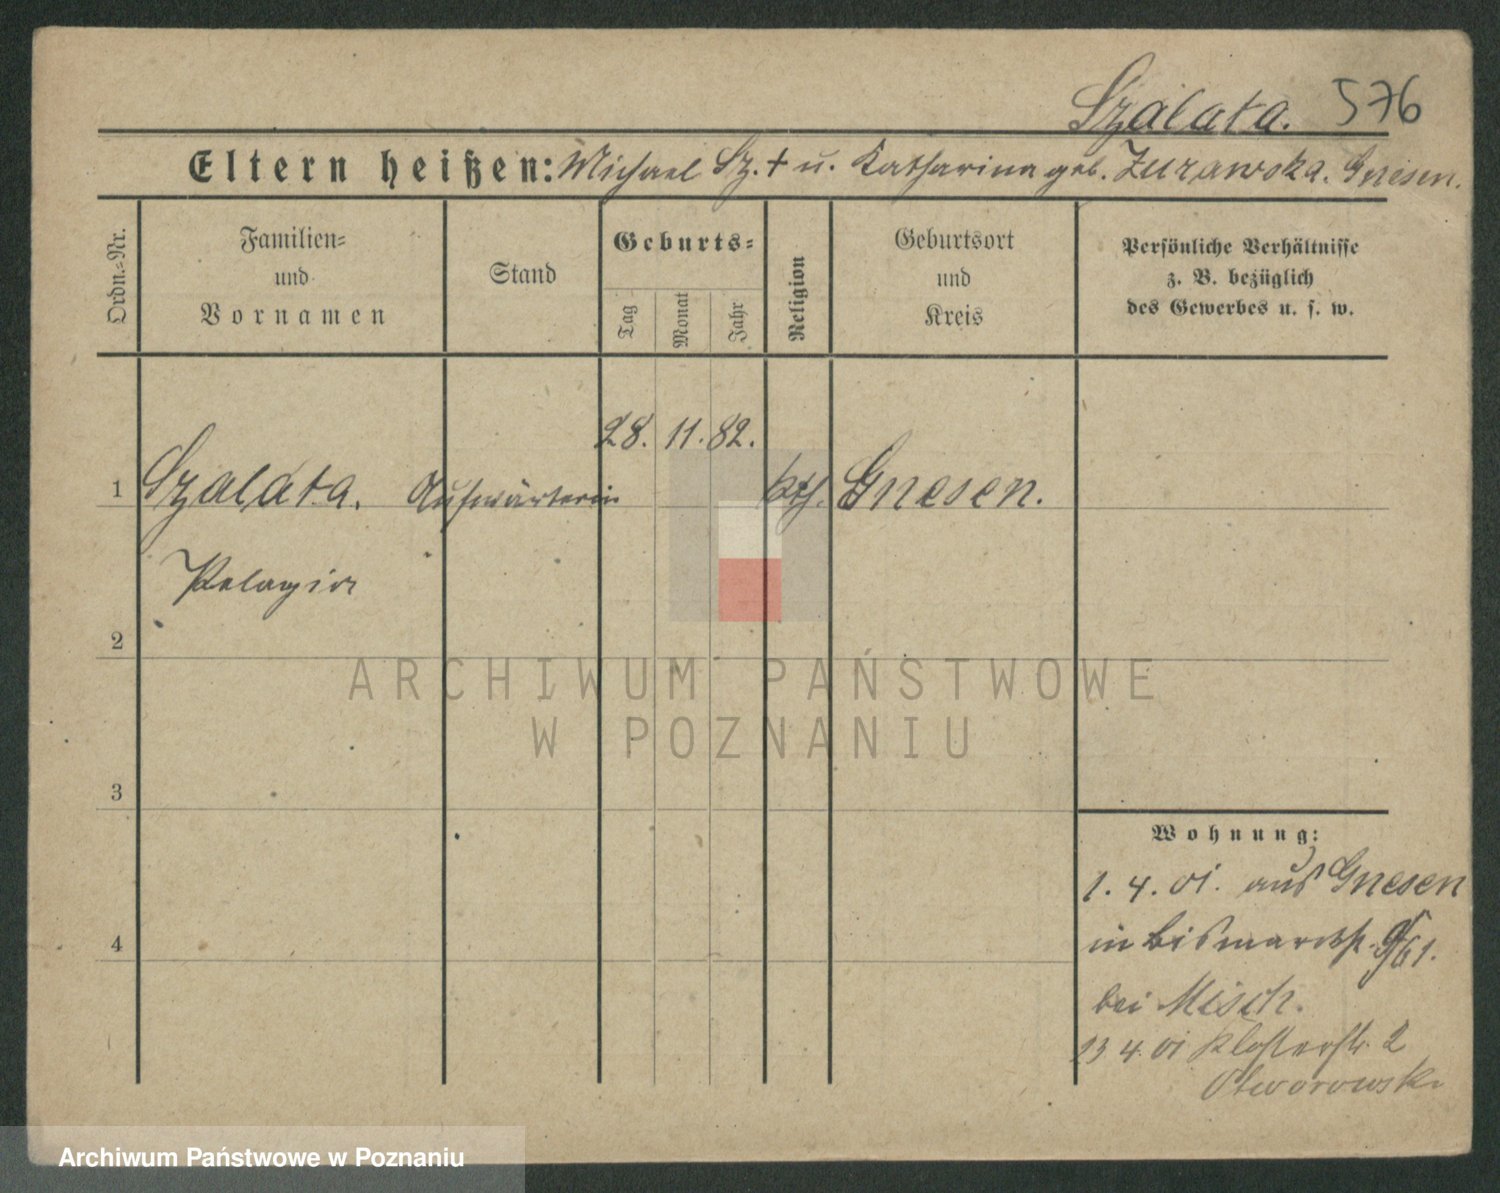 Szalata. 576
Eltern heißen: Michael Sz. + u. Katharina geb. Zurawska. Gnesen.
Ordn.=Nr.
Familien=
und
Vornamen
Stand
Geburts=
Tag
Monat
Jahr
Religion
Geburtsort
und
Kreis
Persönliche Verhältnisse
z. B. bezüglich
des Gewerbes u. s. w.
28. 11. 82.
1 Szalata. Aufwärterin kth. Gnesen.
Pelagia
2
ARCHIWUM PAŃSTWOWE
W POZNANIU
3
Wohnung:
1. 4. 01. aus Gnesen
4
in Bismarckst.
bei Misch.
23 4. 01 Klosterstr. 2
Otworowski
Archiwum Państwowe w Poznaniu